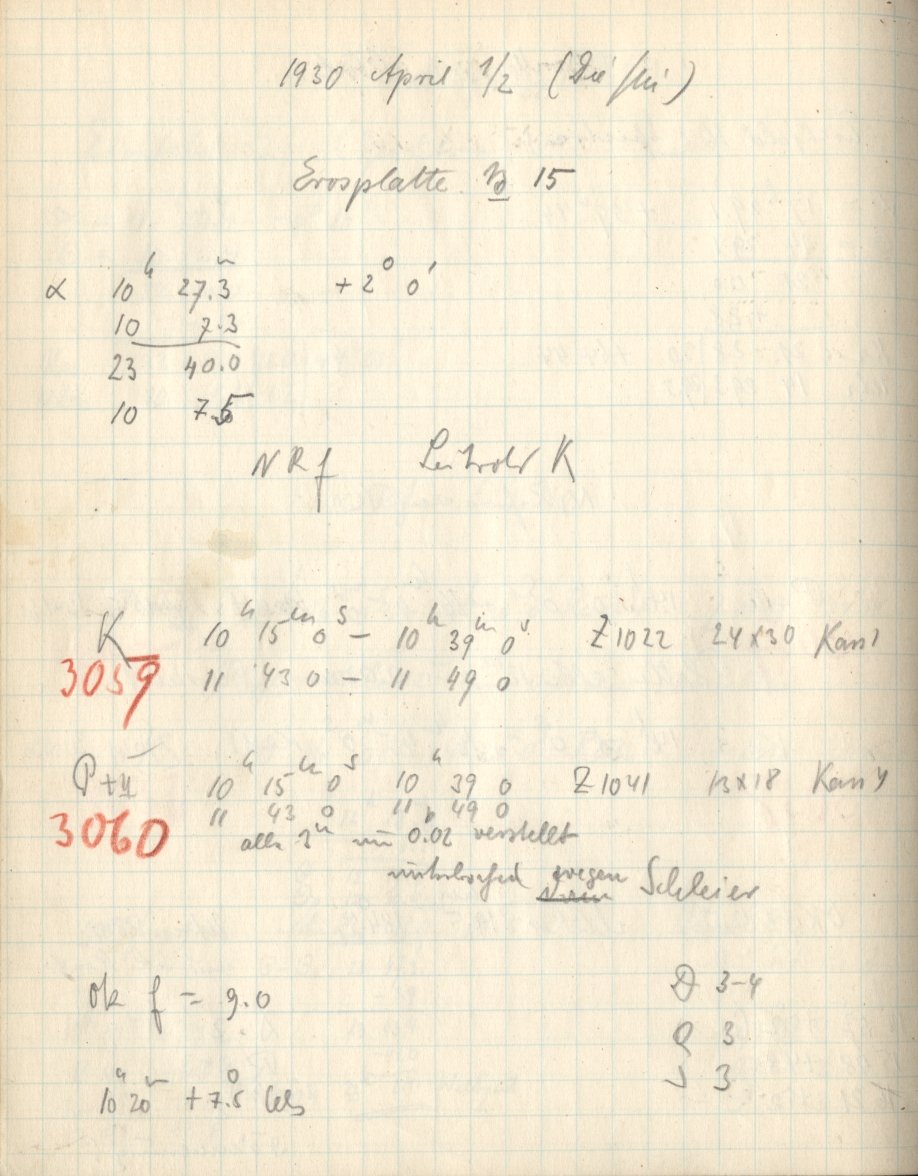 1930 April 1/2 (Di / Mi)
Erosplatte B 15
α 10h 27.3m +2° 0'
10 7.3
23 40.0
10 7.5
NRf Leitrohr K
K 10h 15m 0s – 10h 39m 0s Z1022 24x30
3059 11 43 0 – 11 49 0
P+ 10h 15m 0s 10h 39 0 Z1041 13x18
3060 11 43 0 11 49 0
alle 3m um 0.02 verstellt
unterbrochen wegen Schleier
Ok f = 9.0
D 3-4
Q 3
J 3
10h 20m +7.5° Cels